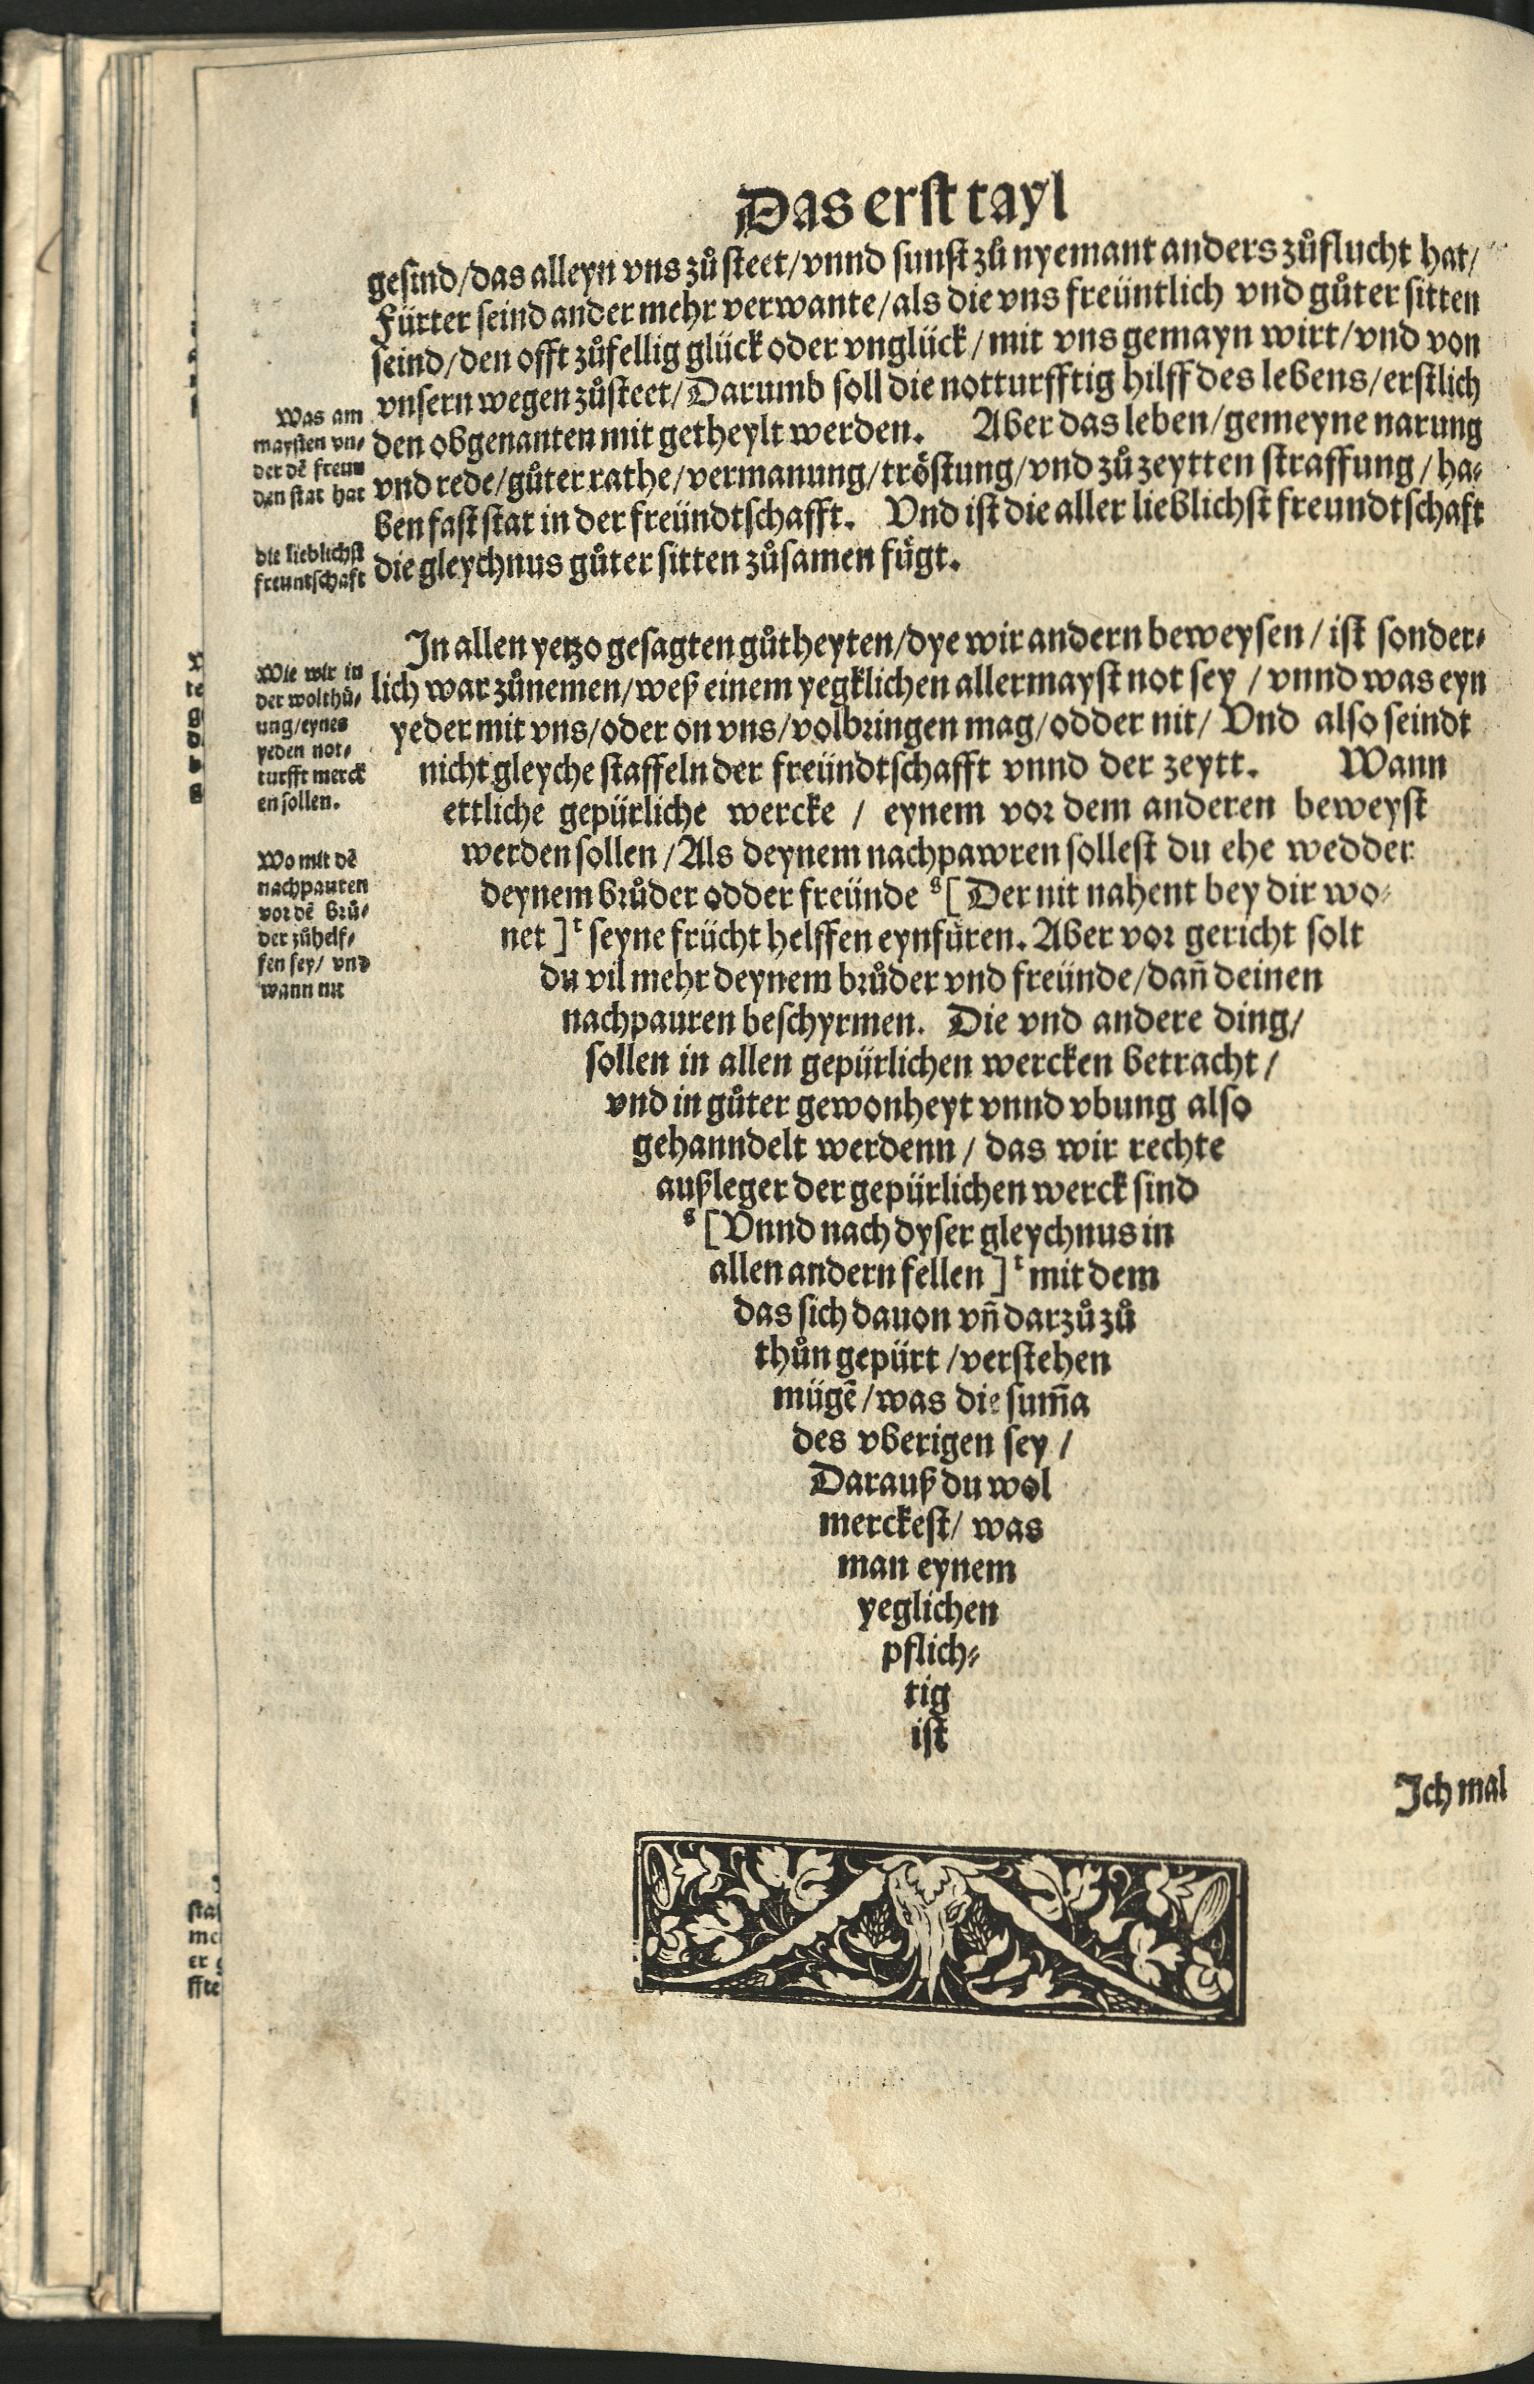 Das erst tayl
gesind/das alleyn vns zů steet/vnnd sunst zů nyemant anders zůflucht hat/
Fürter seind ander mehr verwante/als die vns freüntlich vnd gůter sitten
seind/den offt zůfellig glück oder vnglück/mit vns gemayn wirt/vnd von
vnsern wegen zůsteet/Darumb soll die notturfftig hilff des lebens/erstlich
den obgenanten mit getheylt werden. Aber das leben/gemeyne narung
vnd rede/gůter rathe/vermanung/tröstung/vnd zů zeytten straffung/ha-
ben fast stat in der freündtschafft. Vnd ist die aller lieblichst freundtschaft
die gleychnus gůter sitten zůsamen fügt.
Was am
maysten vn-
der dē freun
den stat hat
die lieblichst
freuntschaft
In allen yetzo gesagten gůtheyten/dye wir andern beweysen/ist sonder-
lich war zůnemen/weß einem yegklichen allermayst not sey/vnnd was eyn
yeder mit vns/oder on vns/volbringen mag/odder nit/Vnd also seindt
nicht gleyche staffeln der freündtschafft vnnd der zeytt. Wann
ettliche gepürliche wercke / eynem vor dem anderen beweyst
werden sollen/Als deynem nachpawren sollest du ehe wedder
deynem brůder odder freünde ᵍ[Der nit nahent bey dir wo-
net]ᵗ seyne frücht helffen eynfüren. Aber vor gericht solt
du vil mehr deynem brůder vnd freünde/dañ deinen
nachpauren beschyrmen. Die vnd andere ding/
sollen in allen gepürlichen wercken betracht/
vnd in gůter gewonheyt vnnd vbung also
gehanndelt werdenn/das wir rechte
außleger der gepürlichen werck sind
ᵍ[Vnnd nach dyser gleychnus in
allen andern fellen]ᵗ mit dem
das sich dauon vñ darzů zů
thůn gepürt/verstehen
mügē/was die sum̄a
des vberigen sey/
Darauß du wol
merckest/was
man eynem
yeglichen
pflich-
tig
ist
Wie wir in
der wolthů-
ung/eynes
yeden not-
turfft merck
en sollen.
Wo mit dē
nachpauren
vor dē brů-
der zůhelf-
fen sey/vnd
wann nit
Ich mal